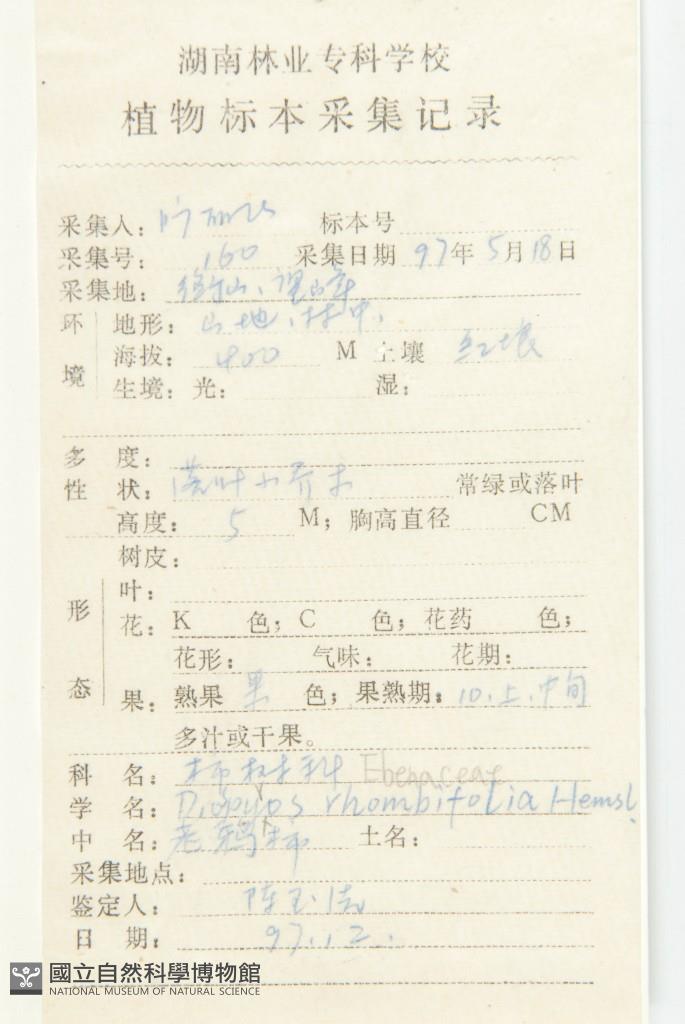 湖南林业专科学校
植物标本采集记录
采集人： 标本号
采集号： 160 采集日期 97年 5月 18日
采集地： 衡山、
环境 地形： 山地、林中、
海拔： 400 M 土壤 红壤
生境：光： 湿：
多度：
性状： 落叶小乔木 常绿或落叶
高度： 5 M；胸高直径 CM
形态 树皮：
叶：
花： K 色；C 色；花药 色；
花形： 气味： 花期：
果：熟果 色；果熟期：10.上.中旬
多汁或干果。
科名： 柿树科 Ebenaceae
学名： Diospyros rhombifolia Hemsl.
中名： 老鸦柿 土名：
采集地点：
鉴定人： 陈
日期： 97.12.
國立自然科學博物館
NATIONAL MUSEUM OF NATURAL SCIENCE